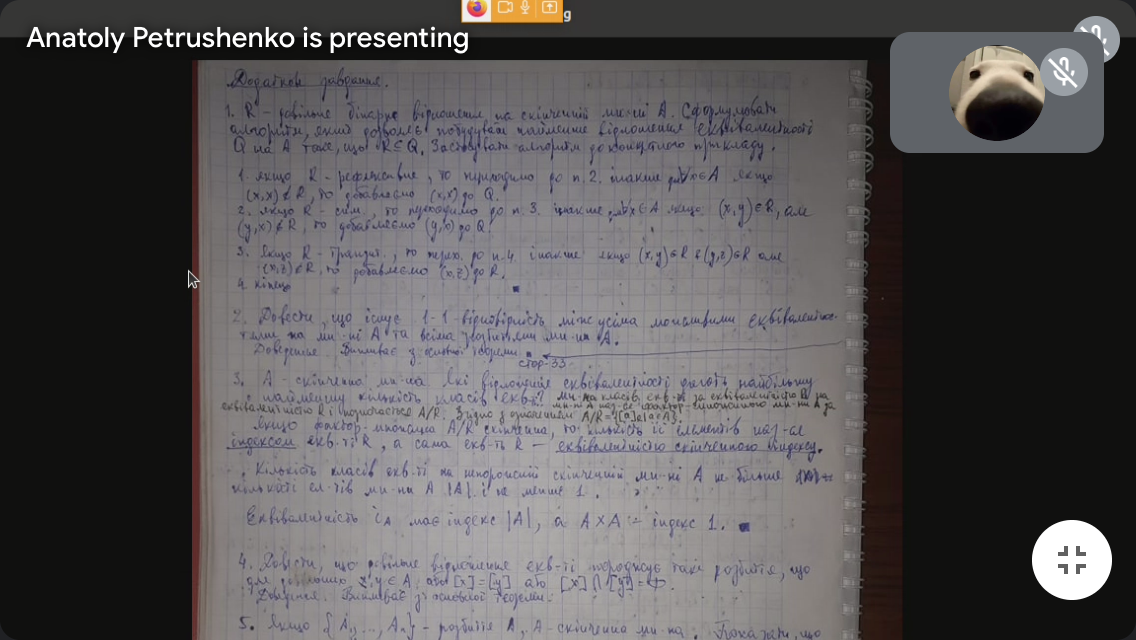 g
Anatoly Petrushenko is presenting
Додаткові завдання.
1. R – довільне бінарне відношення на скінченній мн-ні A. Сформулювати
алгоритм, який дозволяє побудувати найменше відношення еквівалентності
Q на A таке, що R ⊆ Q. Застосувати алгоритм до конкретного прикладу.
1. якщо R – рефлексивне, то переходимо до п. 2. інакше для ∀x∈A якщо
(x,x)∉R, то добавляємо (x,x) до Q.
2. якщо R – сим., то переходимо до п. 3. інакше ∈A якщо (x,y)∈R, але
(y,x)∉R, то добавляємо (y,x) до Q.
3. якщо R – транзит., то перех. до п. 4. інакше якщо (x,y)∈R & (y,z)∈R але
(x,z)∉R, то добавляємо (x,z) до R.
4. кінець
2. Довести, що існує 1-1 відповідність між усіма можливими еквівалентнос-
тями на мн-ні A та всіма розбиттями мн-ни A.
Доведення. Випливає з основної теореми.
стор. 33
3. A – скінченна мн-на які відношення еквівалентності дають найбільшу
найменшу кількість класів екв-ті? мн-на класів екв-ті за еквівалентністю R
мн-ни A наз-ся фактор-множиною мн-ни A за
еквівалентністю R і позначається A/R. Згідно з означенням A/R={[a]|a∈A}.
якщо фактор-множина A/R скінченна, то кількість її елементів наз-ся
індексом екв-ті R, а сама екв-ть R – еквівалентністю скінченного індексу.
Кількість класів екв-ті на непорожній скінченній мн-ні A не більше
кількості ел-тів мн-ни A |A| і не менше 1.
Еквівалентність i_A має індекс |A|, а A×A – індекс 1.
4. Довести, що довільне відношення екв-ті породжує таке розбиття, що
для довільних x,y∈A, або [x]=[y] або [x]∩[y]=∅
Доведення. Випливає з основної теореми.
5. Якщо {A₁,...,Aₙ} – розбиття A, A – скінченна мн-на. Показати, що